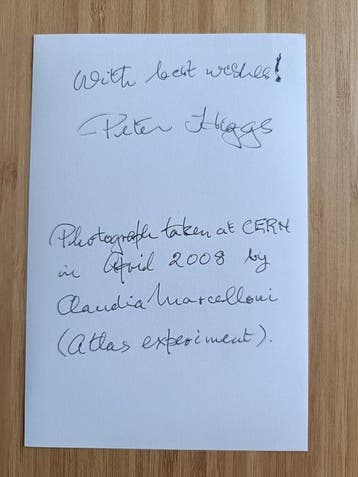 With best wishes!
Peter Higgs
Photograph taken at CERN
in April 2008 by
Claudia Marcelloni
(Atlas experiment).